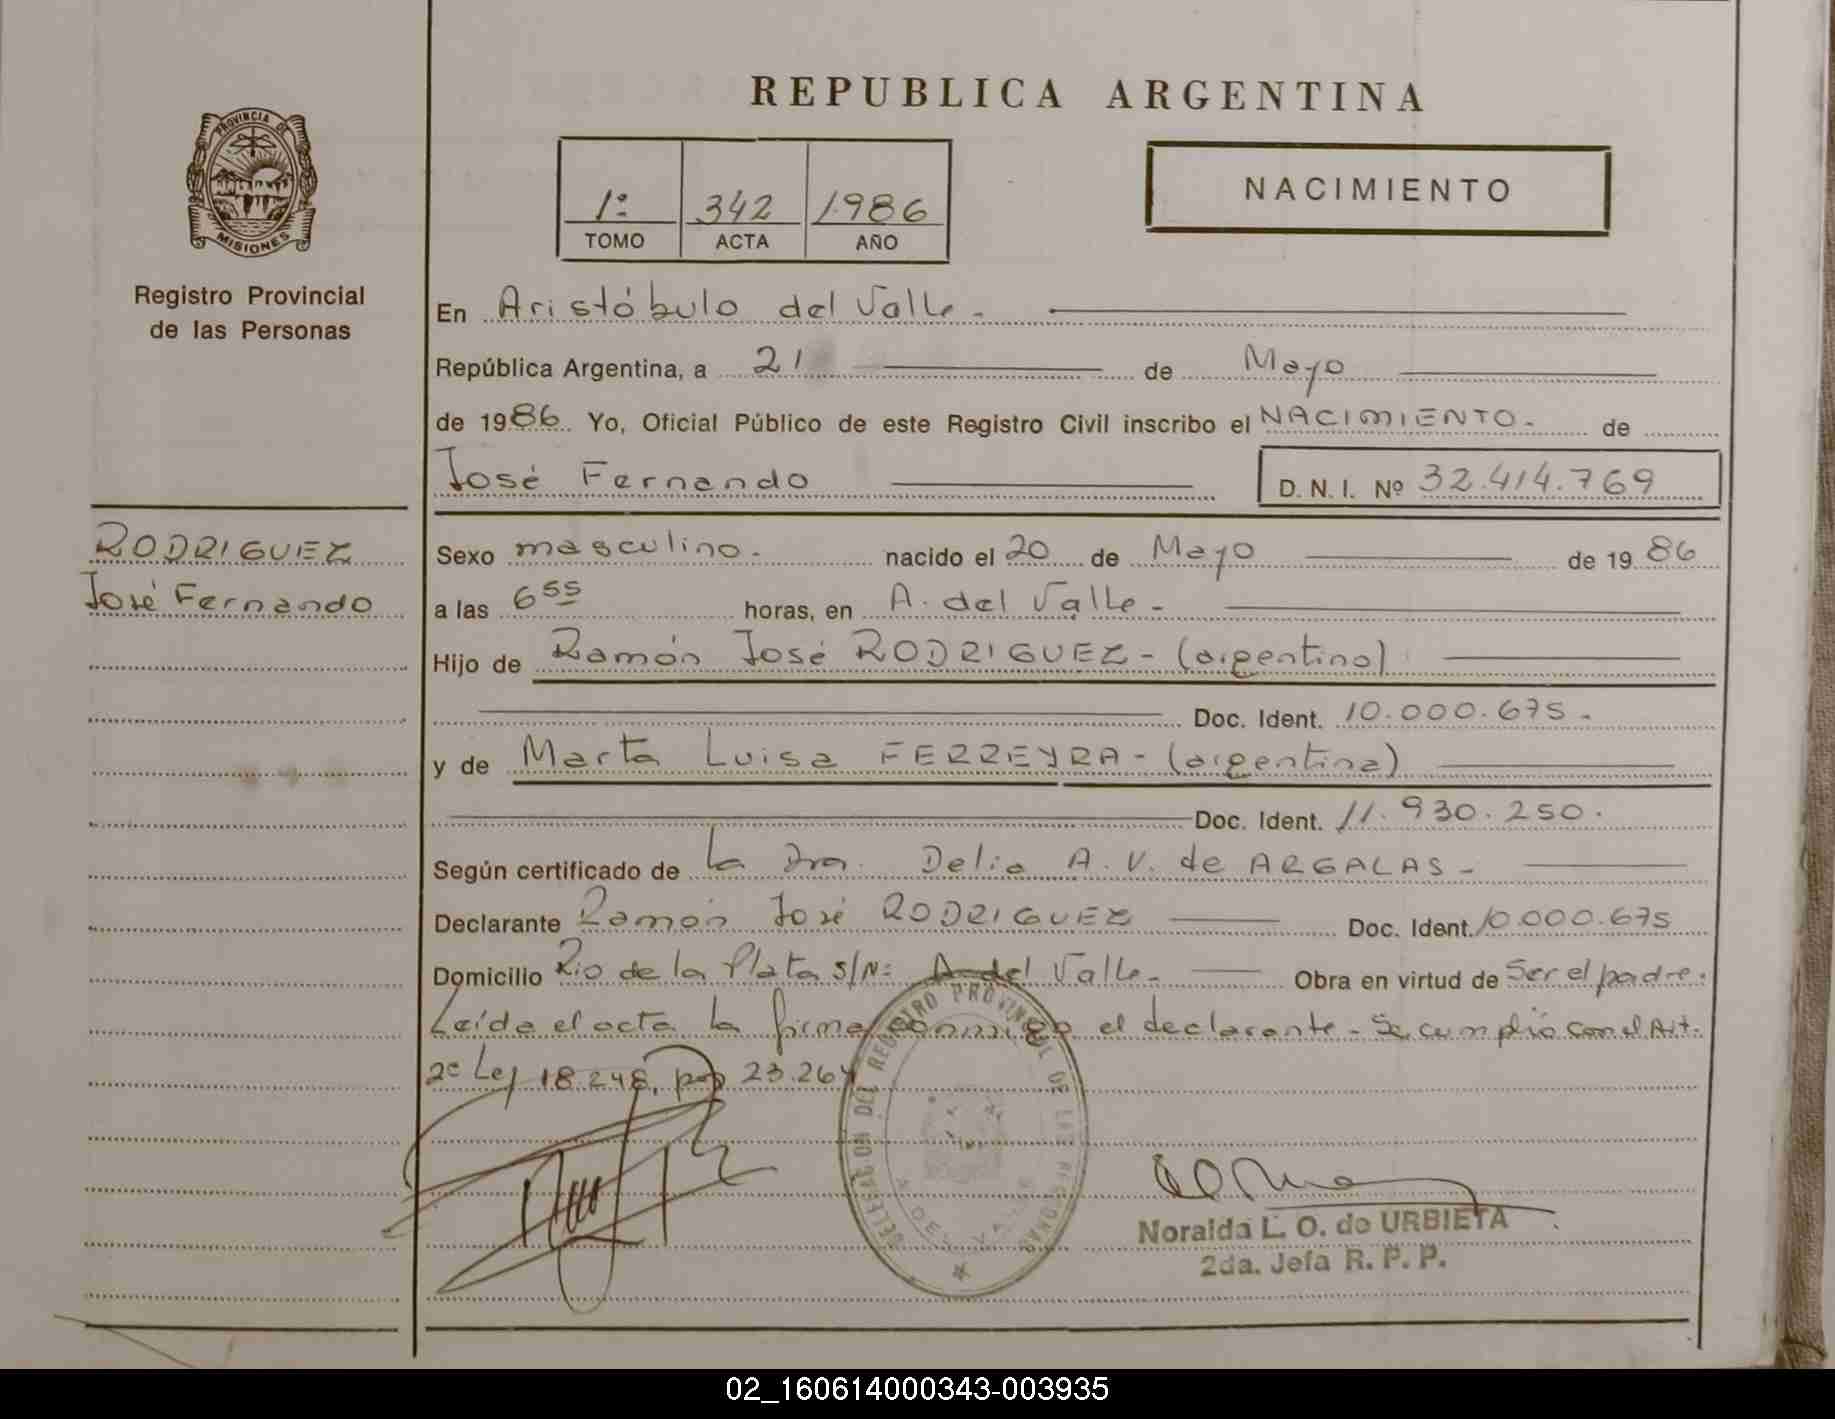 REPUBLICA ARGENTINA
PROVINCIA DE
MISIONES
Registro Provincial
de las Personas
1º 342 1986
TOMO ACTA AÑO
NACIMIENTO
En Aristóbulo del Valle -
República Argentina, a 21 de Mayo
de 1986. Yo, Oficial Público de este Registro Civil inscribo el NACIMIENTO - de
José Fernando D. N. I. Nº 32.414.769
RODRIGUEZ
José Fernando
Sexo masculino. nacido el 20 de Mayo de 1986
a las 6 55 horas, en A. del Valle -
Hijo de Ramón José RODRIGUEZ - (argentino)
Doc. Ident. 10.000.675 -
y de Marta Luisa FERREYRA - (argentina)
Doc. Ident. 11.930.250.
Según certificado de la Dra. Delia A. V. de ARGALAS -
Declarante Ramón José RODRIGUEZ Doc. Ident. 10.000.675
Domicilio Rio de la Plata S/Nº A. del Valle - Obra en virtud de Ser el padre.
Leída el acta la firma conmigo el declarante - Se cumplió con el Art.
2º Ley 18.248, por 23.264
DELEGACION DEL REGISTRO PROVINCIAL DE LAS PERSONAS
A. DEL VALLE
Noralda L. O. de URBIETA
2da. Jefa R. P. P.
02_160614000343-003935